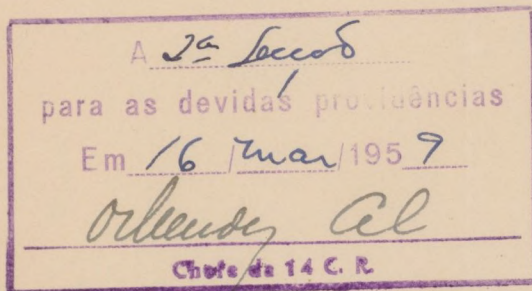 A 2ª Secção
para as devidas providências
Em 16 / Mar / 1959
Cel
Chefe da 14 C. R.